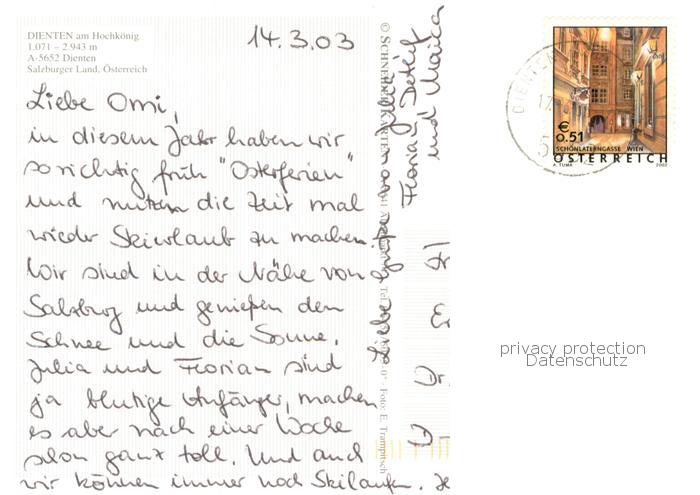 DIENTEN am Hochkönig
1.071 – 2.943 m
A-5652 Dienten
Salzburger Land, Österreich
14.3.03
Liebe Omi,
in diesem Jahr haben wir
so richtig früh "Osterferien"
und nutzen die Zeit mal
wieder Skiurlaub zu machen.
Wir sind in der Nähe von
Salzburg und genießen den
Schnee und die Sonne.
Julia und Florian sind
ja blutige Anfänger, machen
es aber nach einer Woche
schon ganz toll. Und auch
wir können immer noch Skilaufen.
Liebe Grüße von Julia
Florian, Detlef
und Maria
© SCHNEIDER KARTEN
Foto: E. Trampitsch
DIENTEN
17
€
0.51
SCHÖNLATERNGASSE WIEN
ÖSTERREICH
A. TUMA 2002
privacy protection
Datenschutz